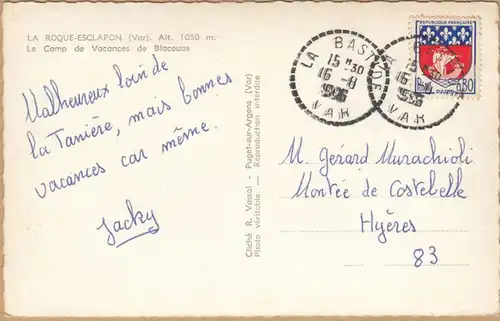 LA ROQUE-ESCLAPON (Var). Alt. 1050 m.
Le Camp de Vacances de Blacouas
Malheureux loin de
la Tanière, mais bonnes
vacances car même.
Jacky
Cliché R. Vassal - Puget-sur-Argens (Var)
Photo véritable - Reproduction interdite
LA BASTIDE
15 H30
16 -8
VAR
LA BASTIDE
VAR
REPUBLIQUE FRANÇAISE
PARIS
0,30
M. Gérard Murachioli
Montée de Costebelle
Hyères
83